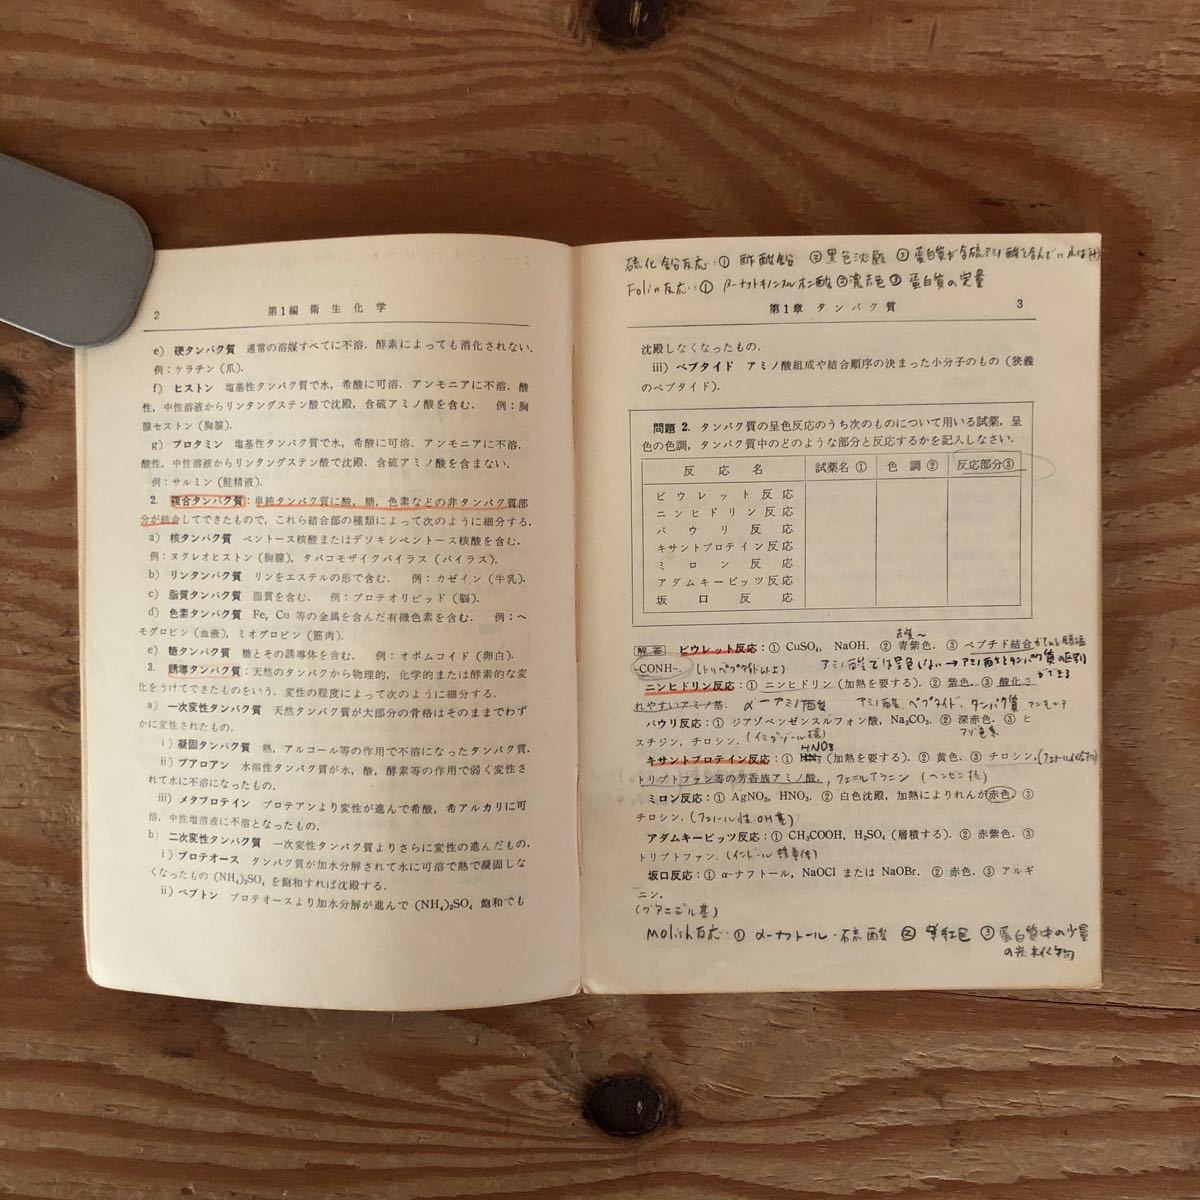 2 第1編 衛生化学
e) 硬タンパク質 通常の溶媒すべてに不溶.酵素によっても消化されない.
例:ケラチン(爪).
f) ヒストン 塩基性タンパク質で水,希酸に可溶.アンモニアに不溶.酸
性,中性溶液からリンタングステン酸で沈殿,含硫アミノ酸を含む. 例:胸
腺セストン(胸腺).
g) プロタミン 塩基性タンパク質で水,希酸に可溶.アンモニアに不溶.
酸性,中性溶液からリンタングステン酸で沈殿.含硫アミノ酸を含まない.
例:サルミン(鮭精液).
2. 複合タンパク質:単純タンパク質に酸,糖,色素などの非タンパク質部
分が結合してできたもので,これら結合部の種類によって次のように細分する.
a) 核タンパク質 ペントース核酸またはデソキシペントース核酸を含む.
例:ヌクレオヒストン(胸腺),タバコモザイクバイラス(バイラス).
b) リンタンパク質 リンをエステルの形で含む. 例:カゼイン(牛乳).
c) 脂質タンパク質 脂質を含む. 例:プロテオリピッド(脳).
d) 色素タンパク質 Fe, Cu 等の金属を含んだ有機色素を含む. 例:ヘ
モグロビン(血液),ミオグロビン(筋肉).
e) 糖タンパク質 糖とその誘導体を含む. 例:オボムコイド(卵白).
3. 誘導タンパク質:天然のタンパクから物理的,化学的または酵素的な変
化をうけてできたものをいう.変性の程度によって次のように細分する.
a) 一次変性タンパク質 天然タンパク質が大部分の骨格はそのままでわず
かに変性されたもの.
i) 凝固タンパク質 熱,アルコール等の作用で不溶になったタンパク質.
ii) プアロアン 水溶性タンパク質が水,酸,酵素等の作用で弱く変性さ
れて水に不溶になったもの.
iii) メタプロテイン プロテアンより変性が進んで希酸,希アルカリに可
溶,中性塩溶液に不溶となったもの.
b) 二次変性タンパク質 一次変性タンパク質よりさらに変性の進んだもの.
i) プロテオース タンパク質が加水分解されて水に可溶で熱で凝固しな
くなったもの (NH₄)₂SO₄ を飽和すれば沈殿する.
ii) ペプトン プロテオースより加水分解が進んで (NH₄)₂SO₄ 飽和でも
硫化鉛反応:① 酢酸鉛 ②黒色沈殿 ③ 蛋白質が含硫アミノ酸を含んでいれば(+)
Folin反応:① β-ナフトキノンスルホン酸 ②濃赤色 ③ 蛋白質の定量
第1章 タンパク質 3
沈殿しなくなったもの.
iii) ペプタイド アミノ酸組成や結合順序の決まった小分子のもの(狭義
のペプタイド).
問題 2. タンパク質の呈色反応のうち次のものについて用いる試薬,呈
色の色調,タンパク質中のどのような部分と反応するかを記入しなさい.
反応名 試薬名① 色調② 反応部分③
ビウレット反応
ニンヒドリン反応
パウリ反応
キサントプロテイン反応
ミロン反応
アダムキービッツ反応
坂口反応
赤紫〜
解答 ビウレット反応:① CuSO₄, NaOH. ② 青紫色. ③ ペプチド結合
-CONH-. (トリペプタイド以上) アミノ酸では呈色しない→アミノ酸とタンパク質の区別
ができる
ニンヒドリン反応:① ニンヒドリン(加熱を要する).② 紫色.③ 酸化さ
れやすいアミノ基. α-アミノ酸 アミノ酸、ペプタイド、タンパク質、アンモニア
パウリ反応:① ジアゾベンゼンスルフォン酸,Na₂CO₃. ② 深赤色.③ ヒ
スチジン,チロシン.(イミダゾール環) アゾ色素
HNO₃
キサントプロテイン反応:① (加熱を要する).② 黄色.③ チロシン,
トリプトファン等の芳香族アミノ酸. フェニルアラニン (ベンゼン核)
ミロン反応:① AgNO₃, HNO₃. ② 白色沈殿,加熱によりれんが赤色.③
チロシン.(フェノール性OH基)
アダムキービッツ反応:① CH₃COOH, H₂SO₄(層積する).② 赤紫色.③
トリプトファン.(インドール誘導体)
坂口反応:① α-ナフトール,NaOCl または NaOBr. ② 赤色.③ アルギ
ニン.
(グアニジル基)
Molish反応:① α-ナフトール・硫酸 ② 紫紅色 ③ 蛋白質中の少量
の炭水化物